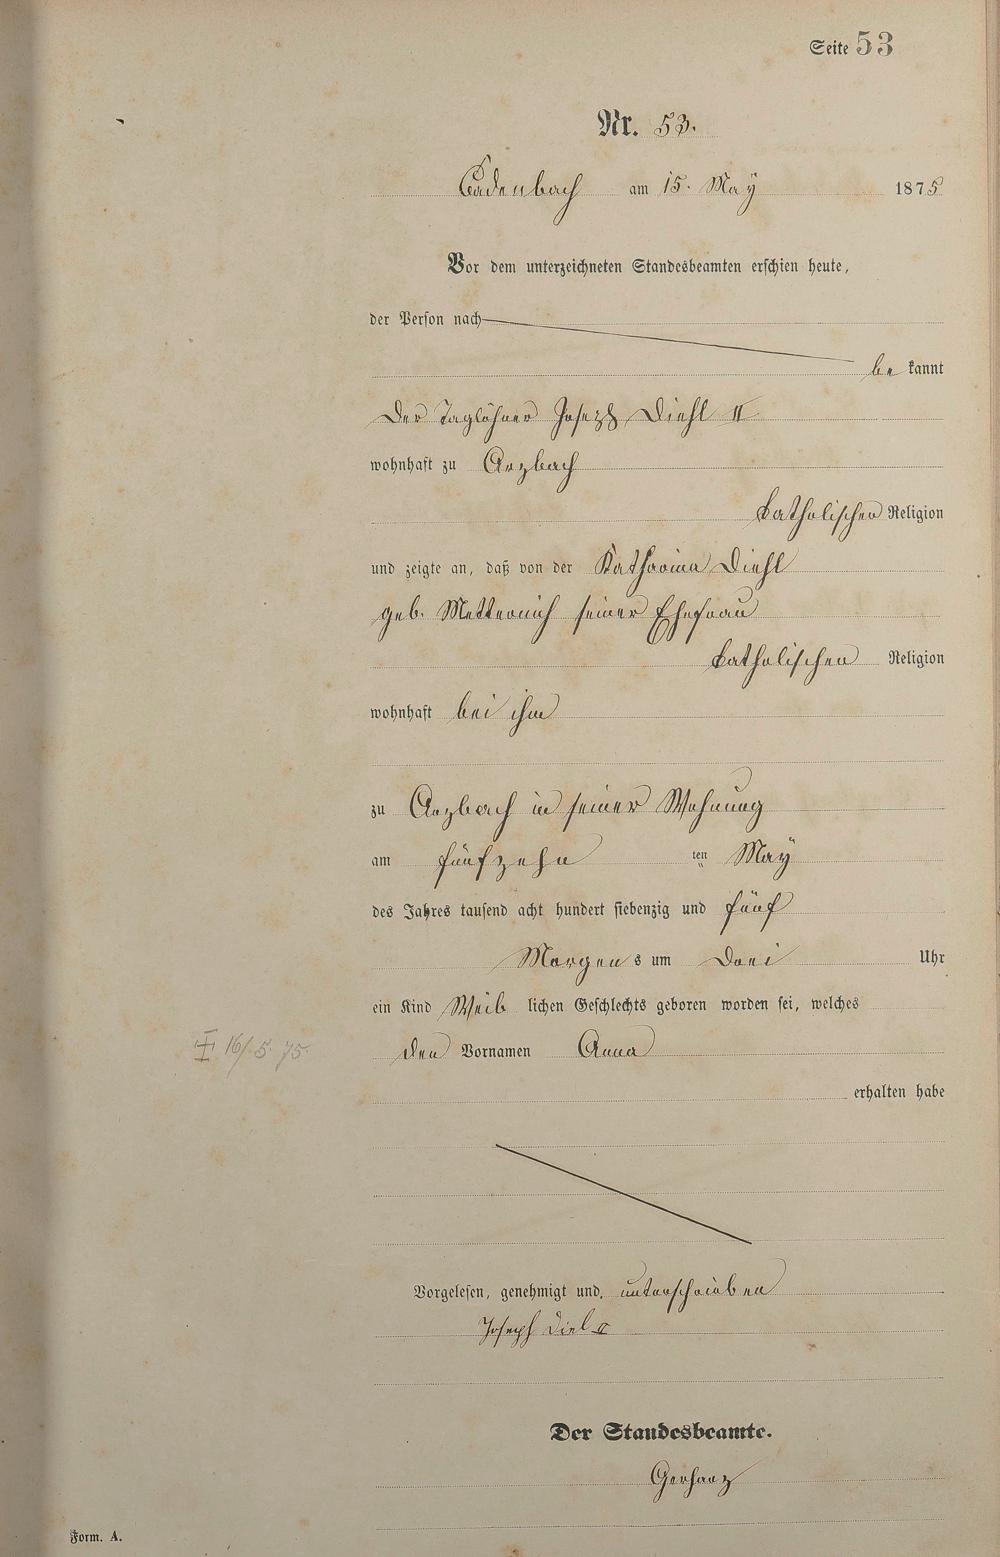 Seite 53
Nr. 53.
Cadenbach am 15. May 1875
Vor dem unterzeichneten Standesbeamten erschien heute,
der Person nach
be kannt
Der Taglöhner Joseph Diehl II
wohnhaft zu Arzbach
katholischer Religion
und zeigte an, daß von der Katharina Diehl
geb. Metternich seiner Ehefrau
katholischen Religion
wohnhaft bei ihm
zu Arzbach in seiner Wohnung
am fünfzehn ten May
des Jahres tausend acht hundert siebenzig und fünf
Morgens um Drei Uhr
ein Kind Weib lichen Geschlechts geboren worden sei, welches
‡ 16/5. 75.
den Vornamen Anna
erhalten habe
Vorgelesen, genehmigt und unterschrieben
Joseph Diel II
Der Standesbeamte.
Gerharz
Form. A.